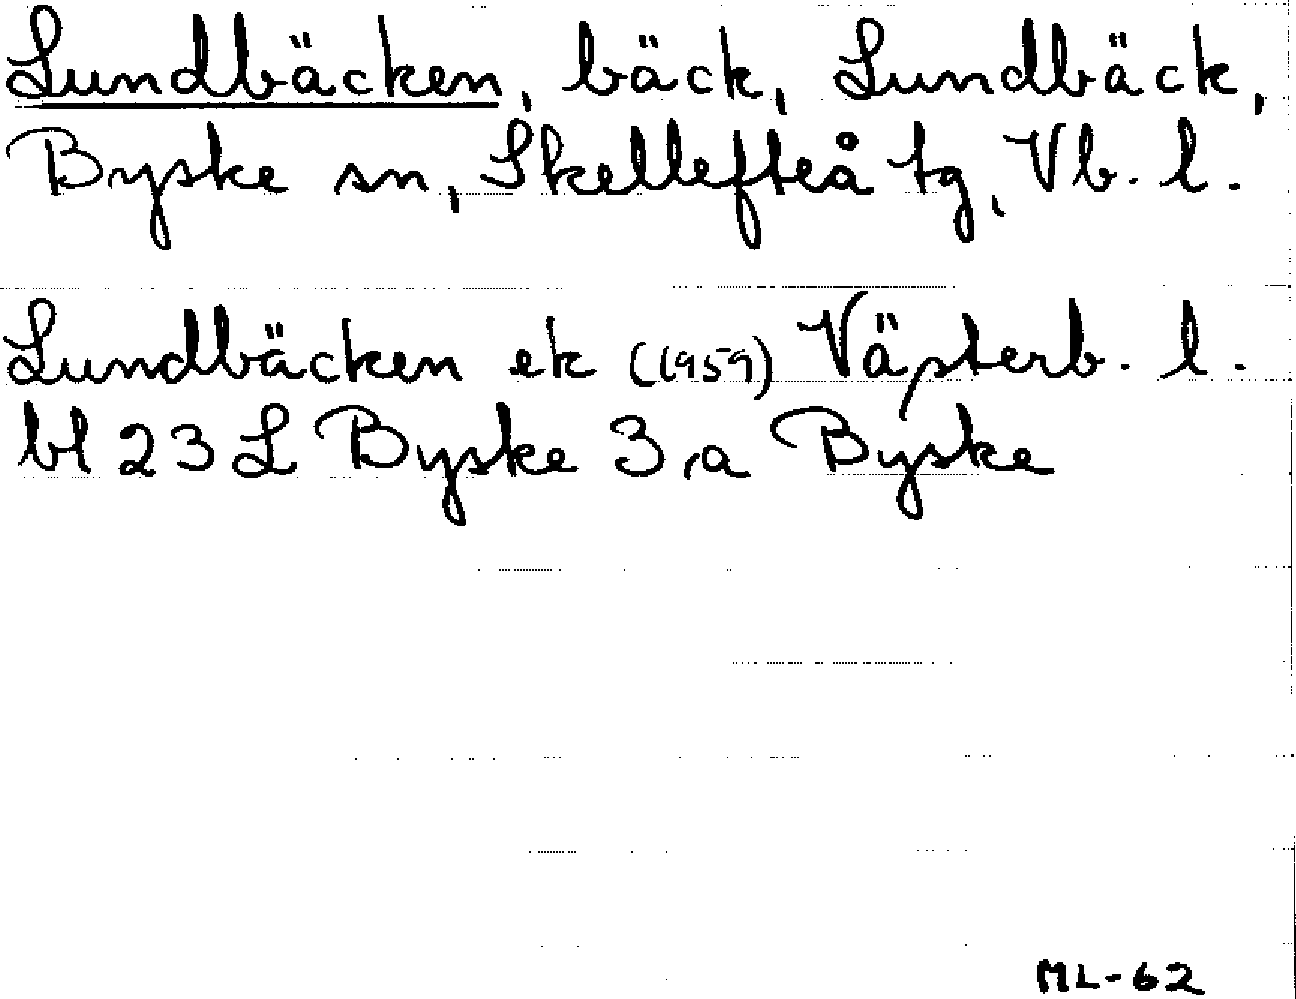 Lundbäcken, bäck, Lundbäck,
Byske sn, Skellefteå tg, Vb. l.
Lundbäcken ek (1959) Västerb. l.
bl 23 L Byske 3,a Byske
ML-62